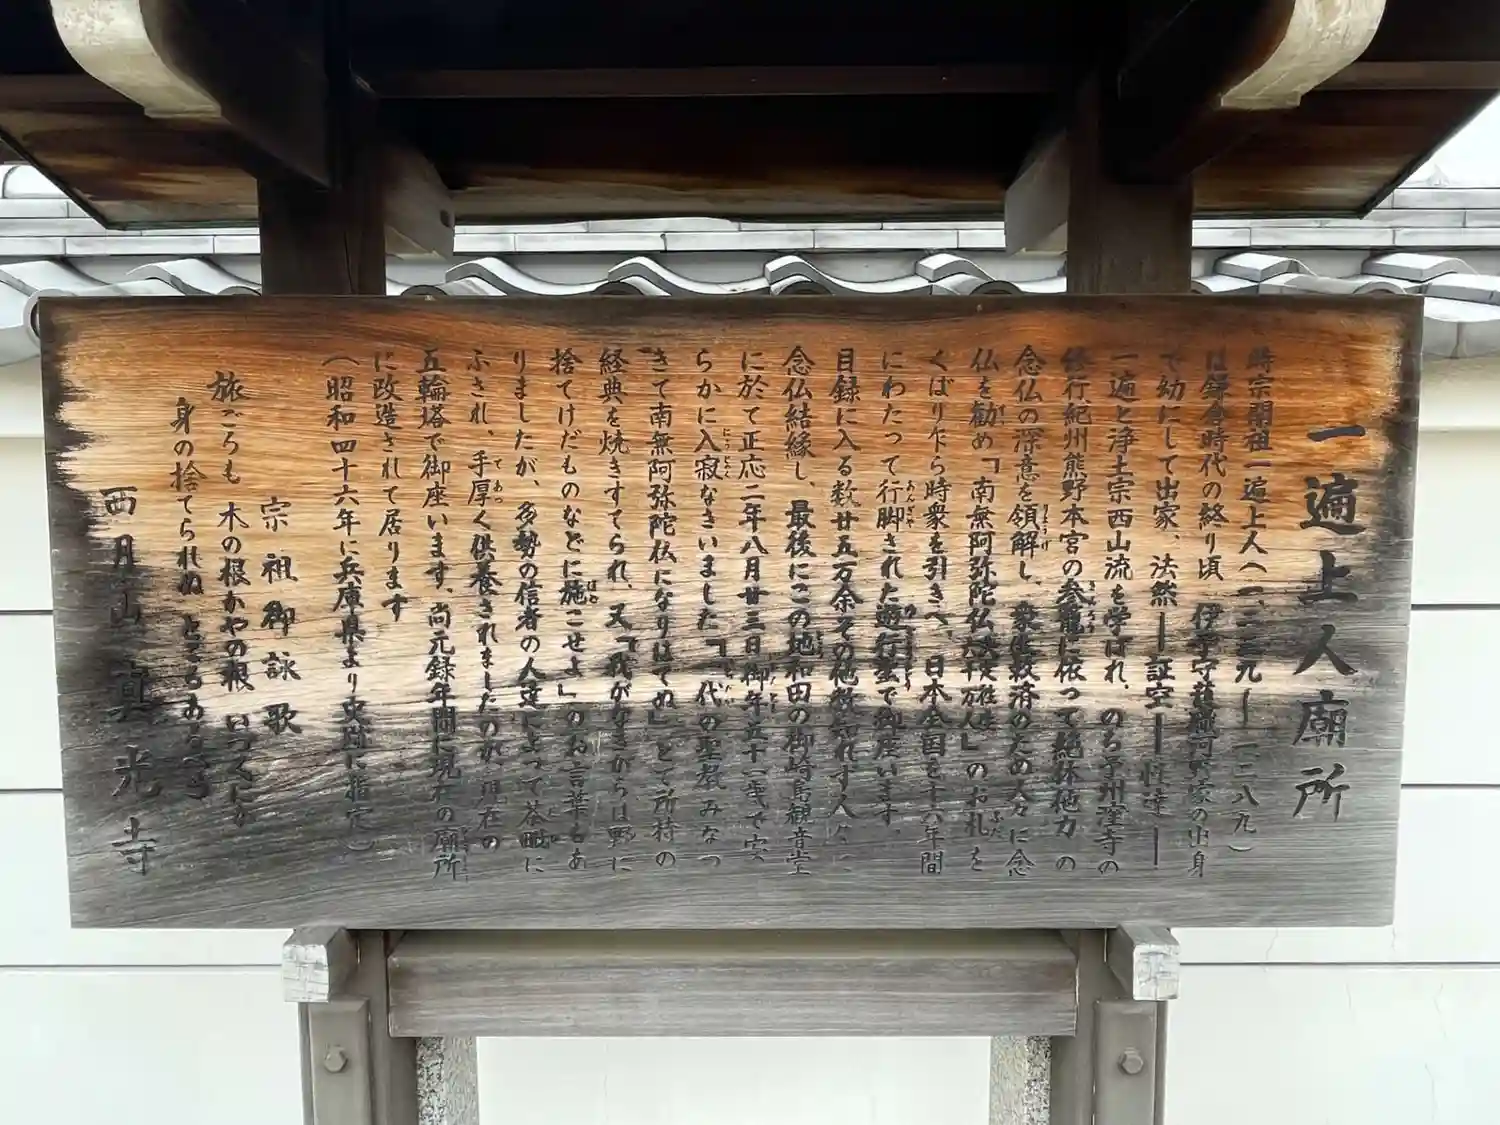 一遍上人廟所
時宗開祖一遍上人（一二三九―一二八九）
は鎌倉時代の終り頃、伊予守護河野家の出身
で幼にして出家、法然―証空―聖達―
一遍と浄土宗西山流を学ばれ、のち予州窪寺の
修行紀州熊野本宮の参籠に依って絶体他力の
念仏の深意を領解し、衆生救済のため人々に念
仏を勧め「南無阿弥陀仏決定往生六十万人」のお札を
くばり乍ら時衆を引きつれ、日本全国を十六年間
にわたって行脚された遊行聖で御座います。
目録に入る数廿五万余その他数知れず人々に
念仏結縁し、最後にこの地和田の御崎島観音堂
に於て正応二年八月廿三日御年五十一歳で安
らかに入寂なさいました「一代の聖教みなつ
きて南無阿弥陀仏になりはてぬ」とて所持の
経典を焼きすてられ、又「我がなきがらは野に
捨てけだものなどに施こせよ」のお言葉もあ
りましたが、多勢の信者の人達によって荼毗に
ふされ、手厚く供養されましたのが、現在の
五輪塔で御座います、尚元録年間に現在の廟所
に改造されて居ります
（昭和四十六年に兵庫県より史跡に指定）
宗祖御詠歌
旅ごろも 木の根かやの根 いづくにか
身の捨てられぬ ところあるべき
西月山 真光寺